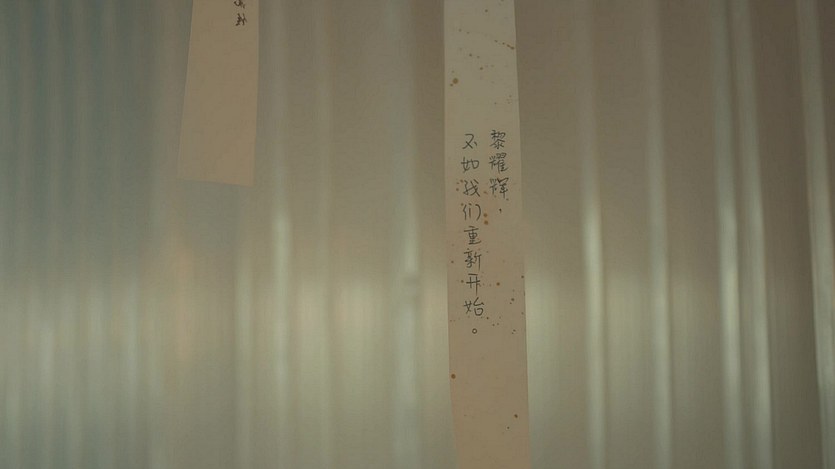 黎耀辉，
不如我们重新开始。